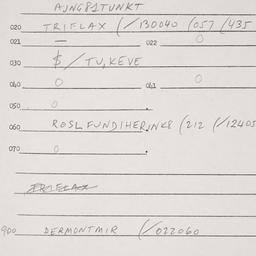 AJNG81TUNKT
020 TRIFLAX (/130040 (057 (435
021 — 022 0
030 $/TU,KEVE
040 0 041 0
050 0 .
060 ROSLFUNDIHERINK8 (212 (/12405
070 0 .
TRIFLAX
900 DERMONTMIR (/022060